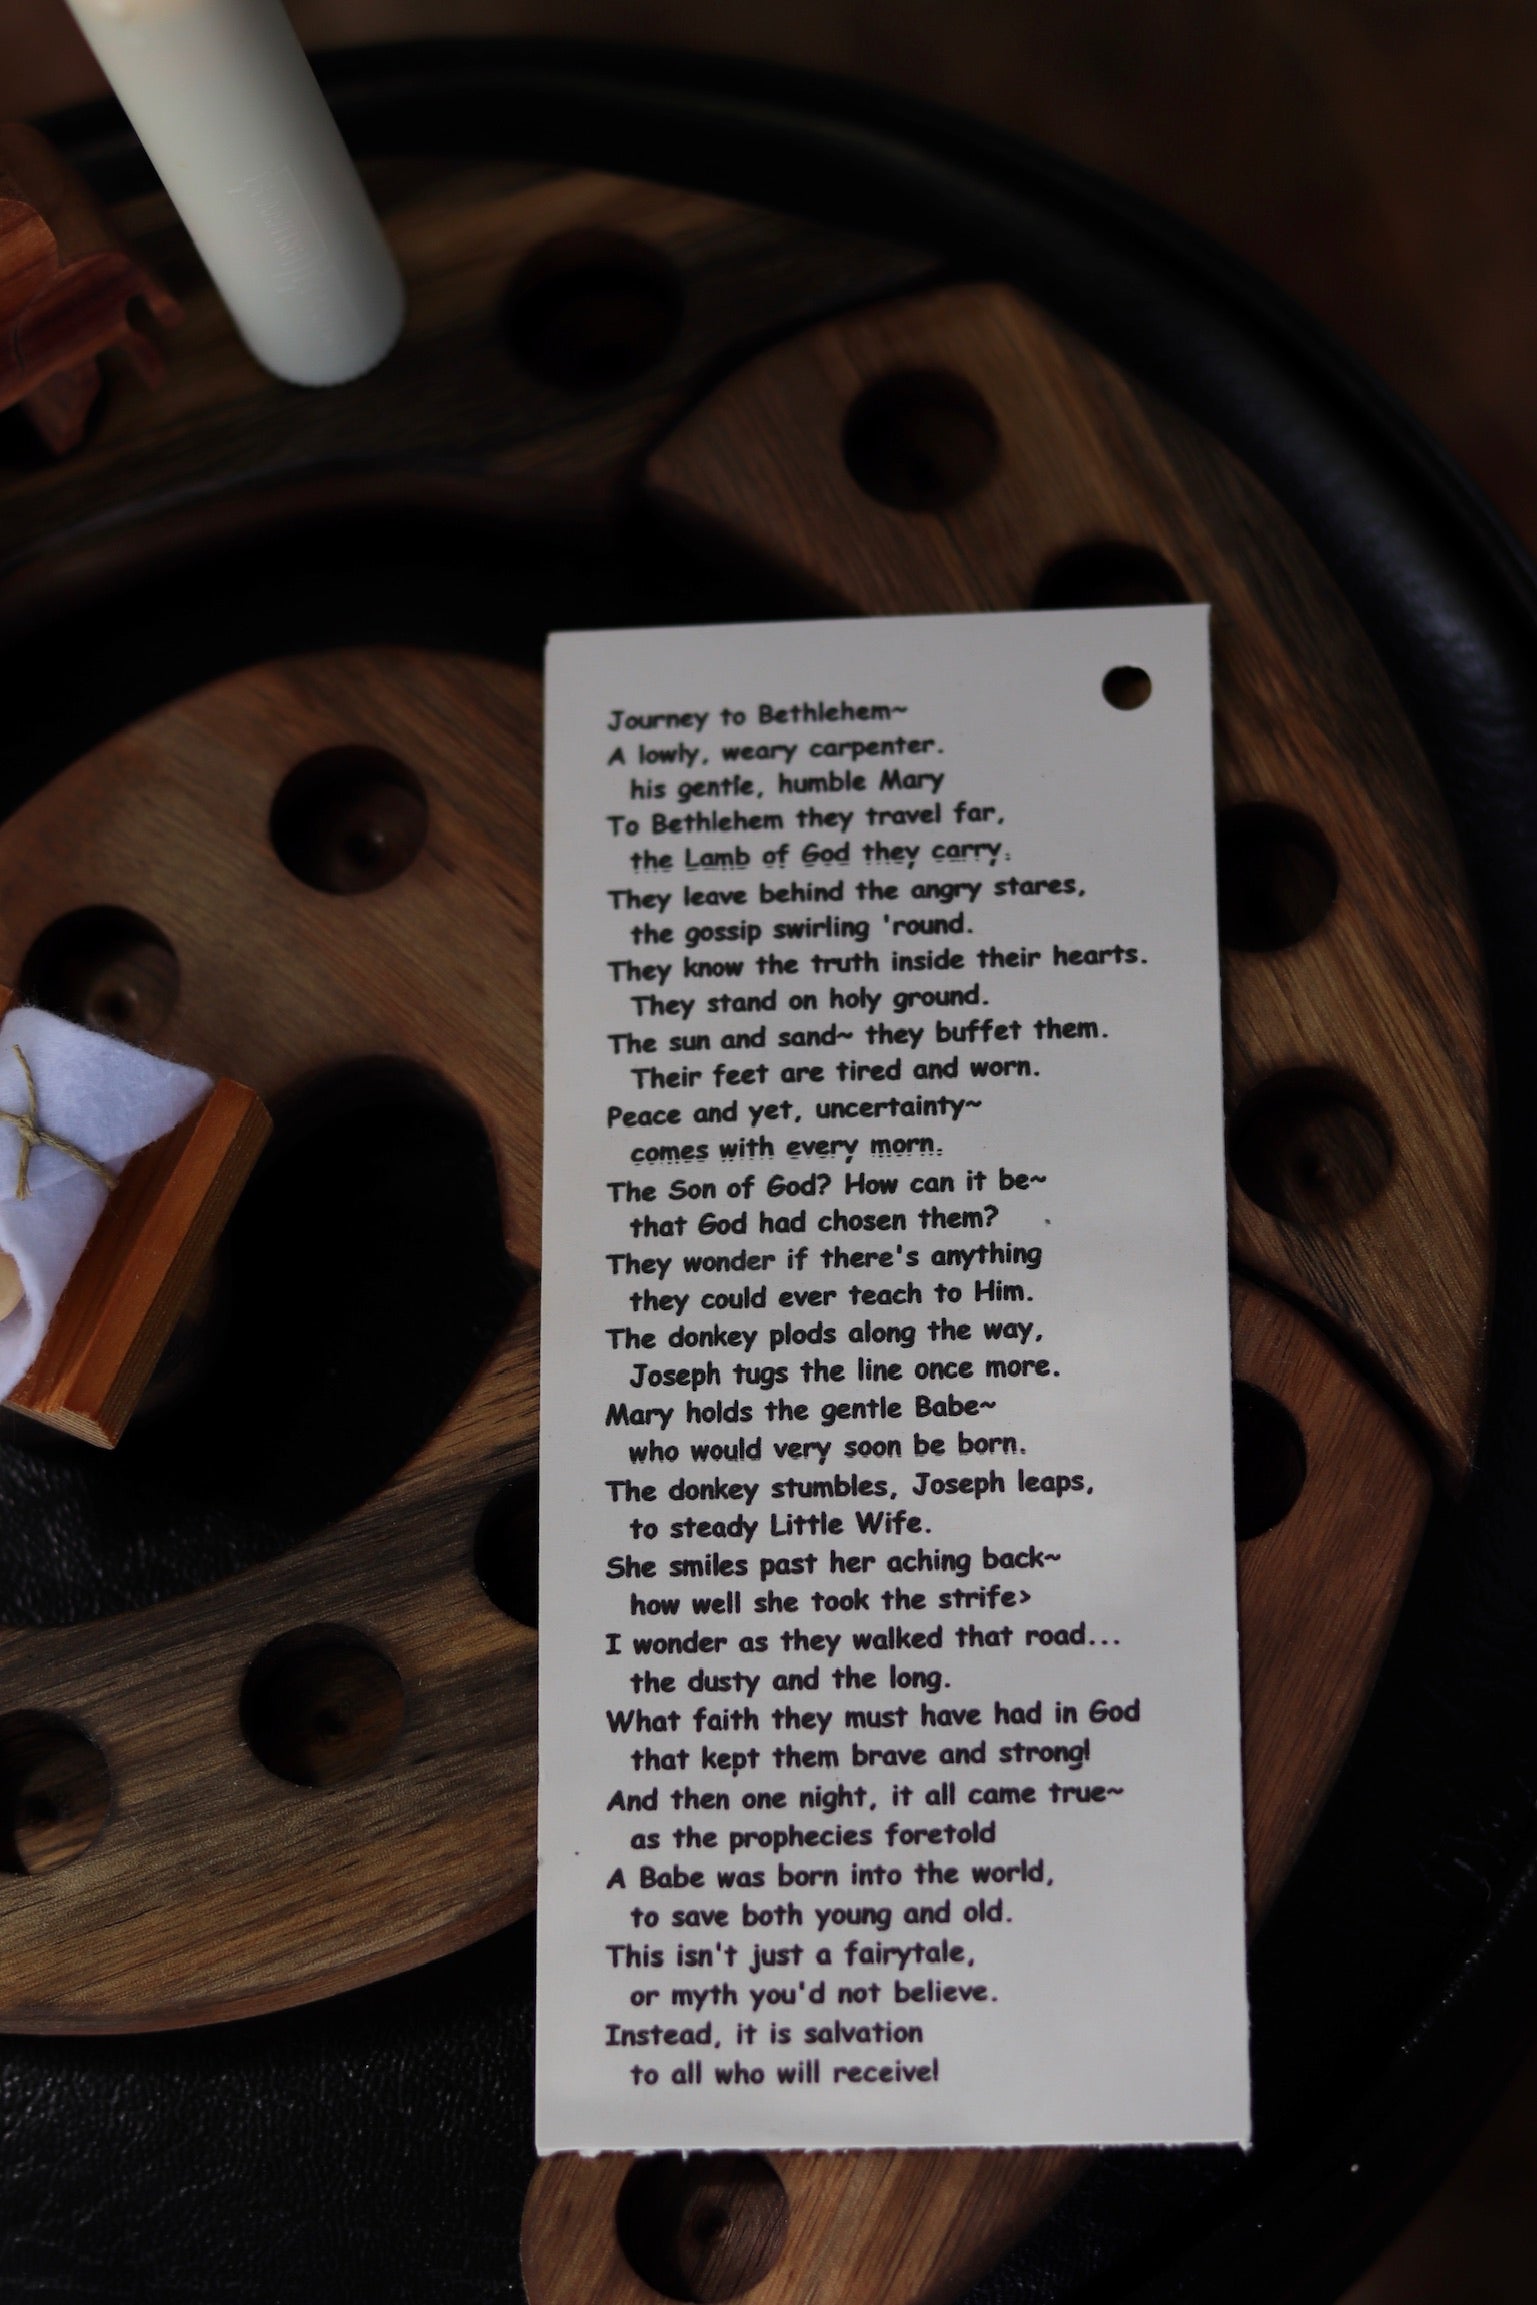 Journey to Bethlehem~
A lowly, weary carpenter.
his gentle, humble Mary
To Bethlehem they travel far,
the Lamb of God they carry.
They leave behind the angry stares,
the gossip swirling 'round.
They know the truth inside their hearts.
They stand on holy ground.
The sun and sand~ they buffet them.
Their feet are tired and worn.
Peace and yet, uncertainty~
comes with every morn.
The Son of God? How can it be~
that God had chosen them?
They wonder if there's anything
they could ever teach to Him.
The donkey plods along the way,
Joseph tugs the line once more.
Mary holds the gentle Babe~
who would very soon be born.
The donkey stumbles, Joseph leaps,
to steady Little Wife.
She smiles past her aching back~
how well she took the strife>
I wonder as they walked that road...
the dusty and the long.
What faith they must have had in God
that kept them brave and strong!
And then one night, it all came true~
as the prophecies foretold
A Babe was born into the world,
to save both young and old.
This isn't just a fairytale,
or myth you'd not believe.
Instead, it is salvation
to all who will receive!